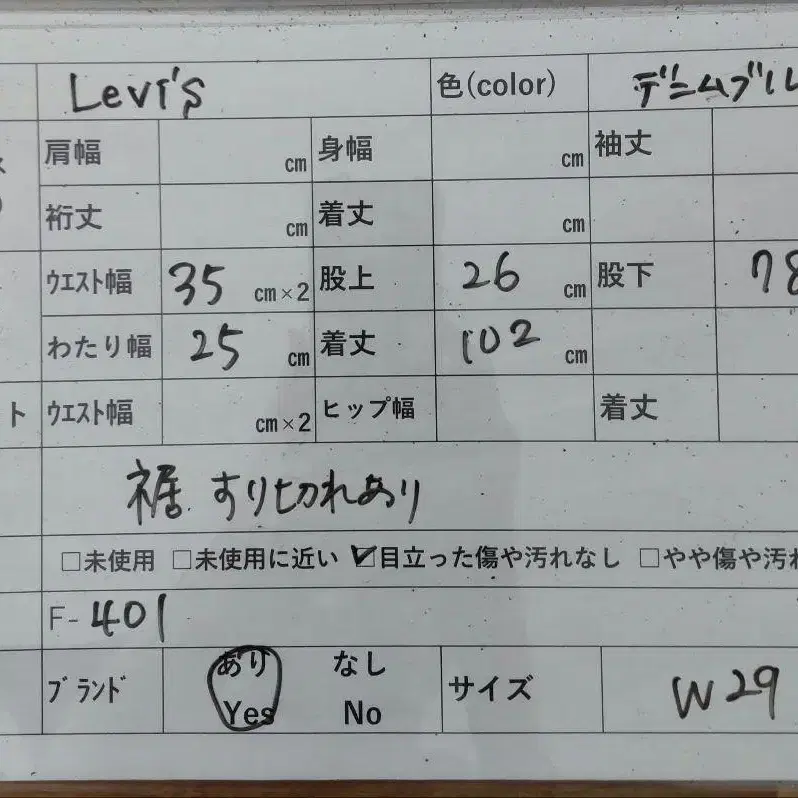 Levi's 色(color) デニムブル
肩幅 cm 身幅 cm 袖丈
裄丈 cm 着丈 cm
ウエスト幅 35 cm×2 股上 26 cm 股下 78
わたり幅 25 cm 着丈 102 cm
ト ウエスト幅 cm×2 ヒップ幅 着丈
裾 すり切れあり
□未使用 □未使用に近い ☑目立った傷や汚れなし □やや傷や汚れ
F-401
ブランド あり Yes なし No サイズ W29